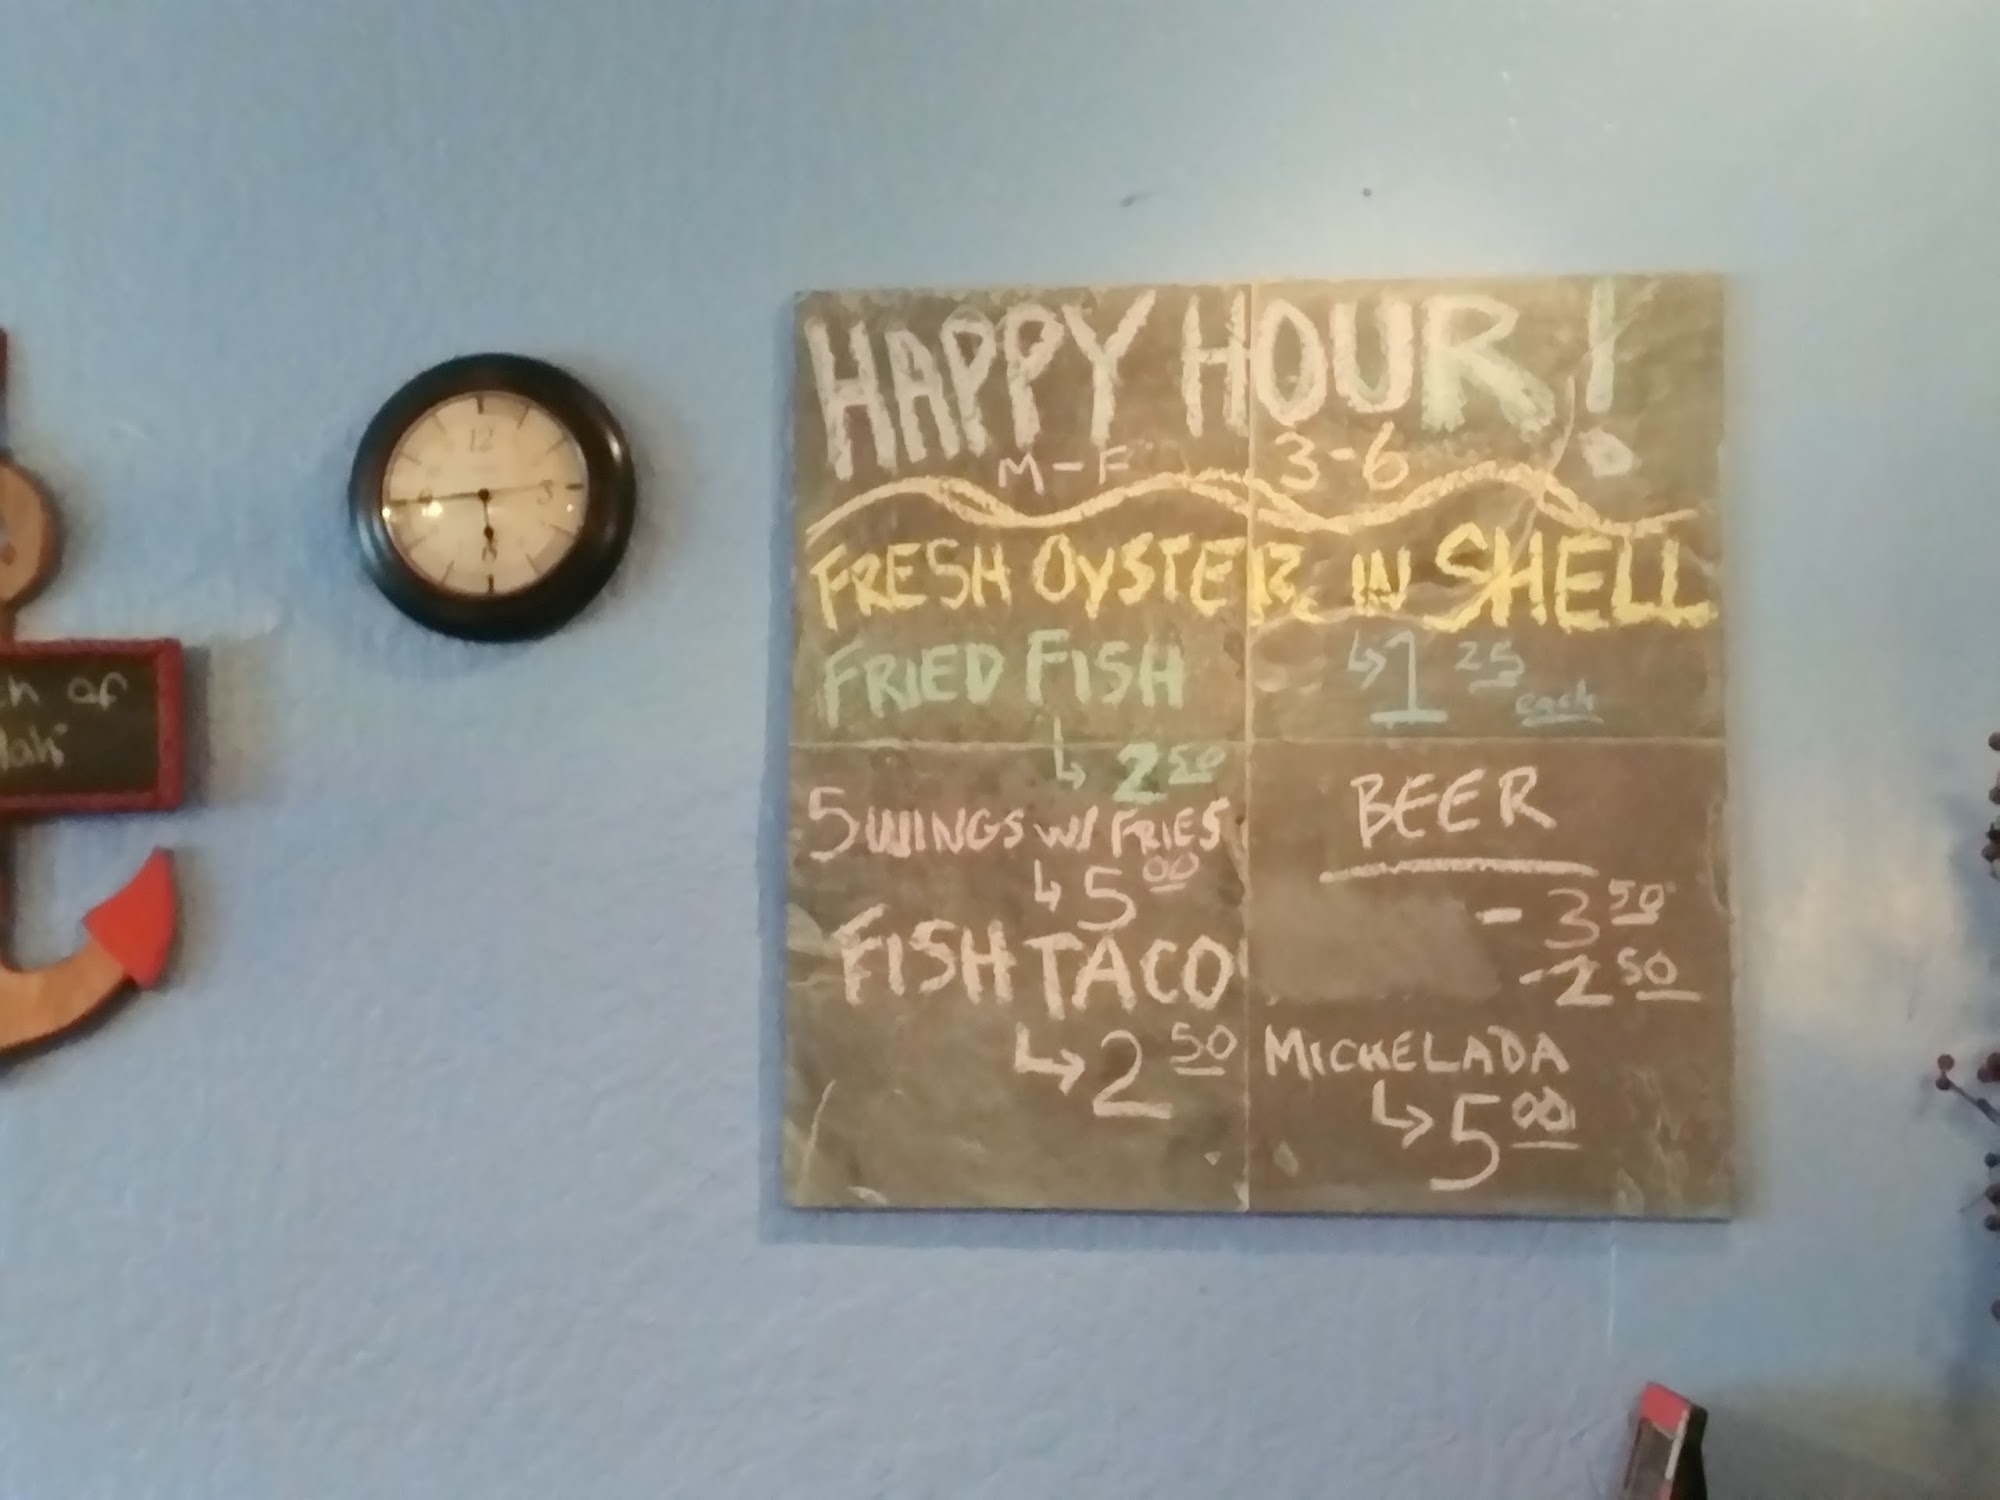 12
3
6
9
HAPPY HOUR!
M-F 3-6
FRESH OYSTER IN SHELL
↳1 25 each
FRIED FISH
↳ 2 50
5 WINGS W/ FRIES
↳ 5 00
FISH TACO
↳ 2 50
BEER
- 3 50
- 2 50
MICHELADA
↳ 5 00
of